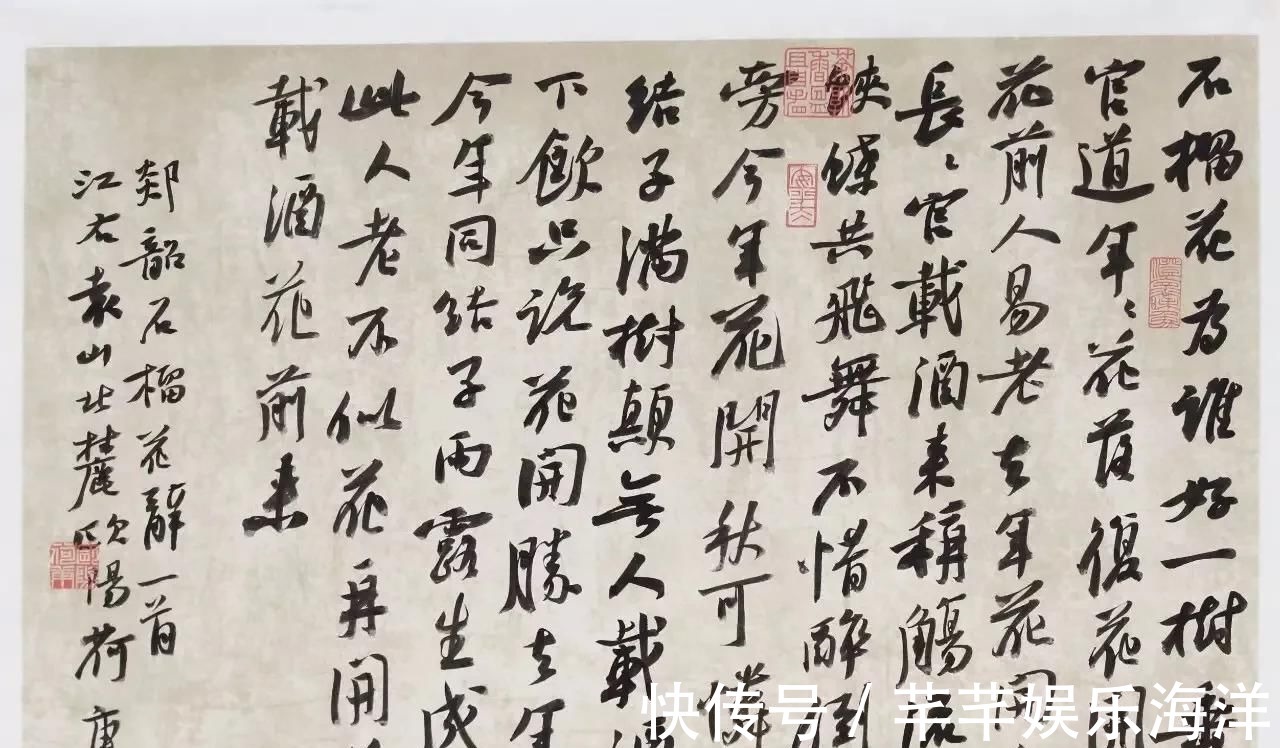 石榴花为谁好一樹
官道年〻花落復花開
花前人易老去年花開
長〻官載酒来稱觴
蛺蝶共飛舞不惜醉倒
旁今年花開秋可憐
结子满樹颠無人載酒
下飲只说花開勝去年
今年同结子雨露生成
此人老不似花再開
載酒花前来
郯韶石榴花辭一首
江右袁山北麓欧陽荷庚
快传号/芊芊娱乐海洋